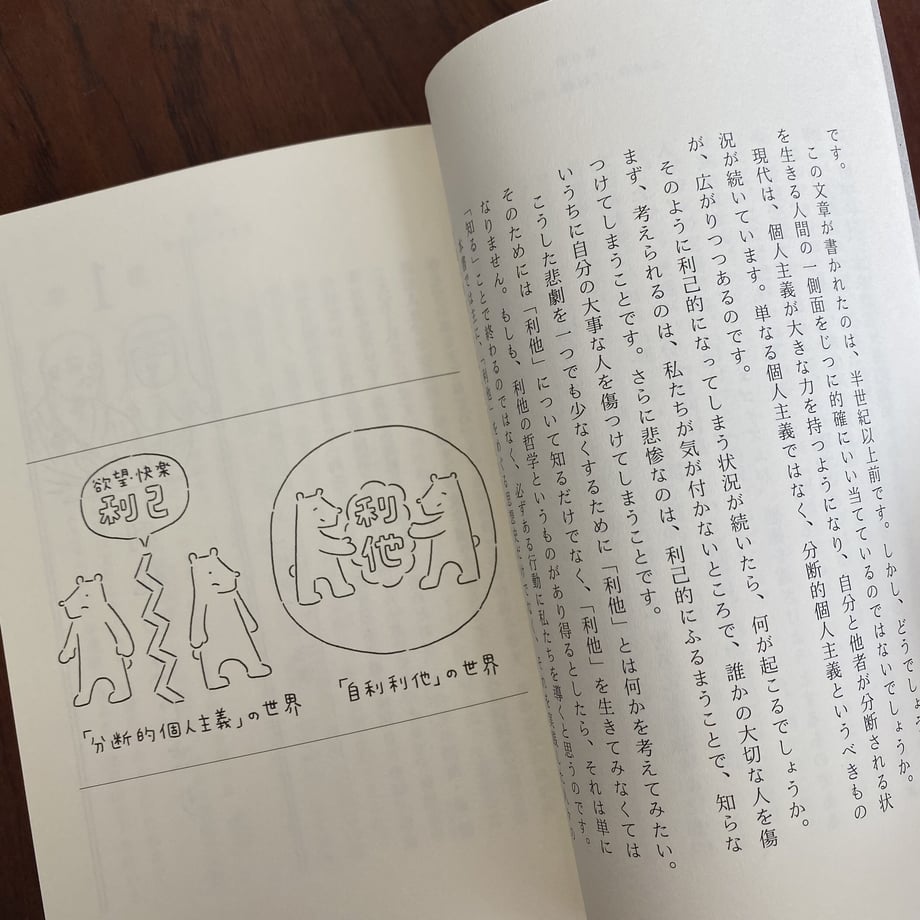 です。
この文章が書かれたのは、半世紀以上前です。しかし、どうでしょう
を生きる人間の一側面をじつに的確にいい当てているのではないでしょうか。
現代は、個人主義が大きな力を持つようになり、自分と他者が分断される状
況が続いています。単なる個人主義ではなく、分断的個人主義というべきもの
が、広がりつつあるのです。
そのように利己的になってしまう状況が続いたら、何が起こるでしょうか。
まず、考えられるのは、私たちが気が付かないところで、誰かの大切な人を傷
つけてしまうことです。さらに悲惨なのは、利己的にふるまうことで、知らな
いうちに自分の大事な人を傷つけてしまうことです。
こうした悲劇を一つでも少なくするために「利他」とは何かを考えてみたい。
そのためには「利他」について知るだけでなく、「利他」を生きてみなくては
なりません。もしも、利他の哲学というものがあり得るとしたら、それは単に
「知る」ことで終わるのではなく、必ずある行動に私たちを導くと思うのです。
欲望・快楽
利己
利
他
「分断的個人主義」の世界
「自利利他」の世界